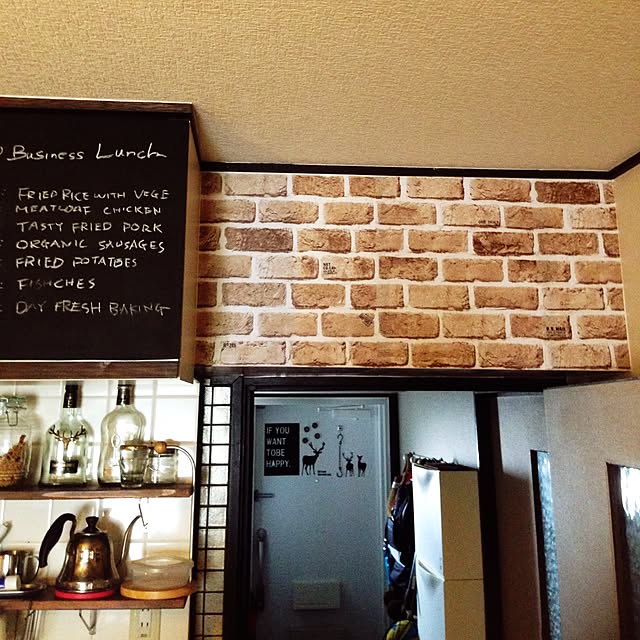 Business Lunch
FRIED RICE WITH VEGE
MEATLOAF CHICKEN
TASTY FRIED PORK
ORGANIC SAUSAGES
FRIED POTATOES
FISHCHES
DAY FRESH BAKING
IF YOU
WANT
TOBE
HAPPY.